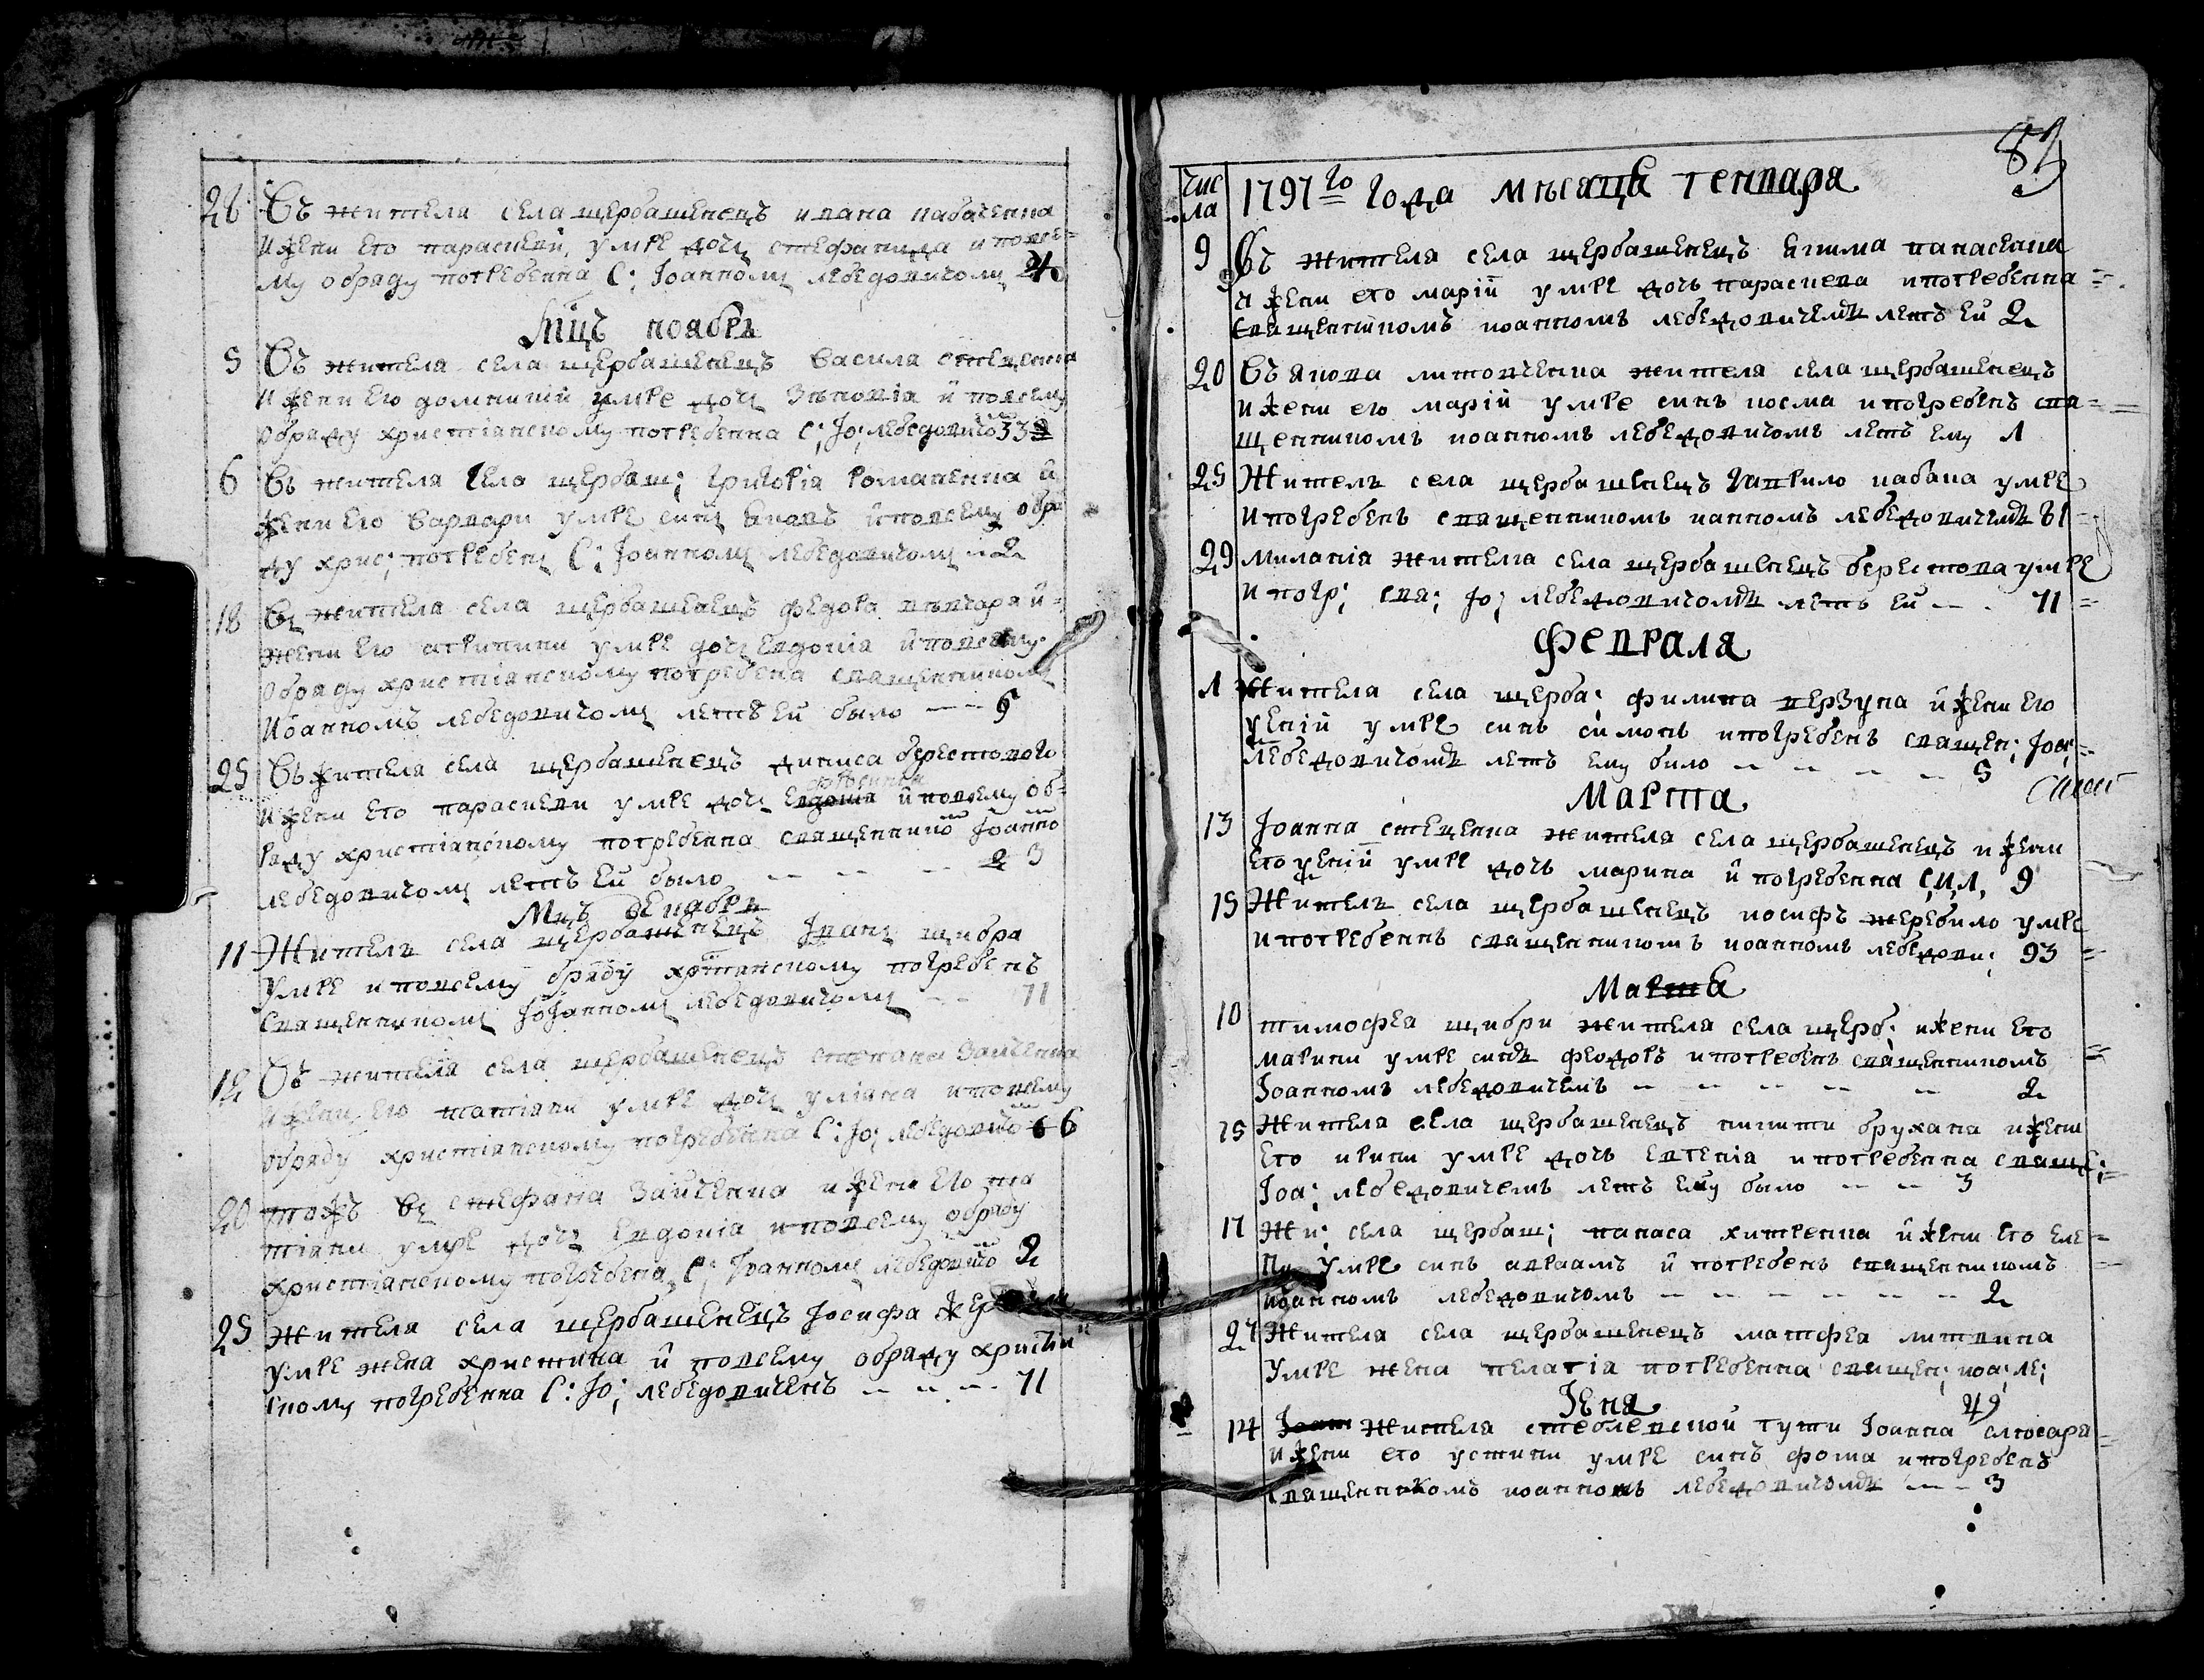 26 Въ жителя села щербашенецъ ивана кабаченка
и жени его параскеви, умре дочь стефанида и повсе=
му обряду погребенна С: Іоанномъ лебедовичомъ 4
Мцъ ноябрь
5 Въ жителя села щербашенецъ Василя стеценка
и жени его домникій умре дочь Зѣновія и повсему
обряду христіанскому погребенна С; Іо; лебедовичо 3
6 Въ жителя села щербаш; григорія романенка и
жени его варвари умре синъ яковъ и повсему обря
ду хрис; погребенъ С: Іоанномъ лебедовичомъ - 2
18 Въ жителя села щербашенецъ федора и=
жени его агрипини умре дочь евдокія и повсему
обряду христіанскому погребена священникомъ
иоанномъ лебедовичомъ летъ ей было — —
25 Въ жителя села щербашенецъ дениса берестового
и жени его параскеви умре дочь и повсему об=
ряду христіанскому погребенна священнико Іоанно
лебедовичомъ летъ ей было — — — 3
Мцъ декабрь
11 Житель села щербашенецъ Іванъ щибра
умре и повсему обряду хртіанскому погребенъ
священникомъ Іоанномъ лебедовичомъ — 71
12 Въ жителя села щербашенецъ степана Заиченка
и жени его татіани умре дочь уліана и повсему
обряду христіанскому погребенна С: Іо; лебедовичо 6
20 тожъ Въ стефана Заиченка и жени его та
тіани умре дочь евдокія и повсему обряду
христіанскому погребена С; Іоанномъ лебедовичо 2
25 Жителя села щербашенецъ Іосифа
умре жена христина и повсему обряду христіан
скому погребенна С: Іо; лебедовичемъ — — — 71
83
Чис
ла
1797го года мѣсяца генваря
9 Въ жителя села щербашенецъ якима панасенка
и жени его маріи умре дочь параскева и погребенна
священникомъ иоанномъ лебедовичемъ летъ ей 2
20 Въ якова литовченка жителя села щербашенецъ
и жени его маріи умре синъ косма и погребенъ свя=
щенникомъ иоанномъ лебедовичомъ летъ ему 1
25 Житель села щербашенецъ гаврило кабака умре
и погребенъ священникомъ ианномъ лебедовичемъ 81
29 миланія жителка села щербашенецъ берестова умре
и погр; свя; Іо; лебедовичомъ летъ ей — - 71
Февраля
1 Жителя села щерба: филипа верзуна и жени его
умре синъ симонъ и погребенъ священ; Іоан;
лебедовичомъ летъ ему било — — — — 5
Марта
13 Іоанна стеценка жителя села щербашенецъ и жени
его умре дочь марина и погребенна С,И,Л, 9
15 Житель села щербашенецъ иосифъ жеребило умре
и погребеннъ священникомъ иоанномъ лебедови; 93
Марта
10 тимофея щибри жителя села щерб: и жени его
марини умре синъ феодоръ и погребенъ священникомъ
Іоанномъ лебедовичемъ — — — — — 2
15 Жителя села щербашенецъ никити брухана и жени
его ирини умре дочь евгенія и погребенна священ;
Іоа; лебедовичемъ летъ ему было — — 3
17 Жи; села щербаш; панаса хитренка и жени его еле=
ни умре синъ авраамъ и погребенъ священникомъ
иоанномъ лебедовичомъ — — — — — — 2
27 Жителя села щербашенецъ матфея литвина
умре жена пелагія погребенна священ; иоа; ле;
49
Іеня
14 Жителя стеблевской гути Іоанна слюсаря
и жени его устини умре синъ фома и погребенъ
священникомъ иоанномъ лебедовичомъ — — 3